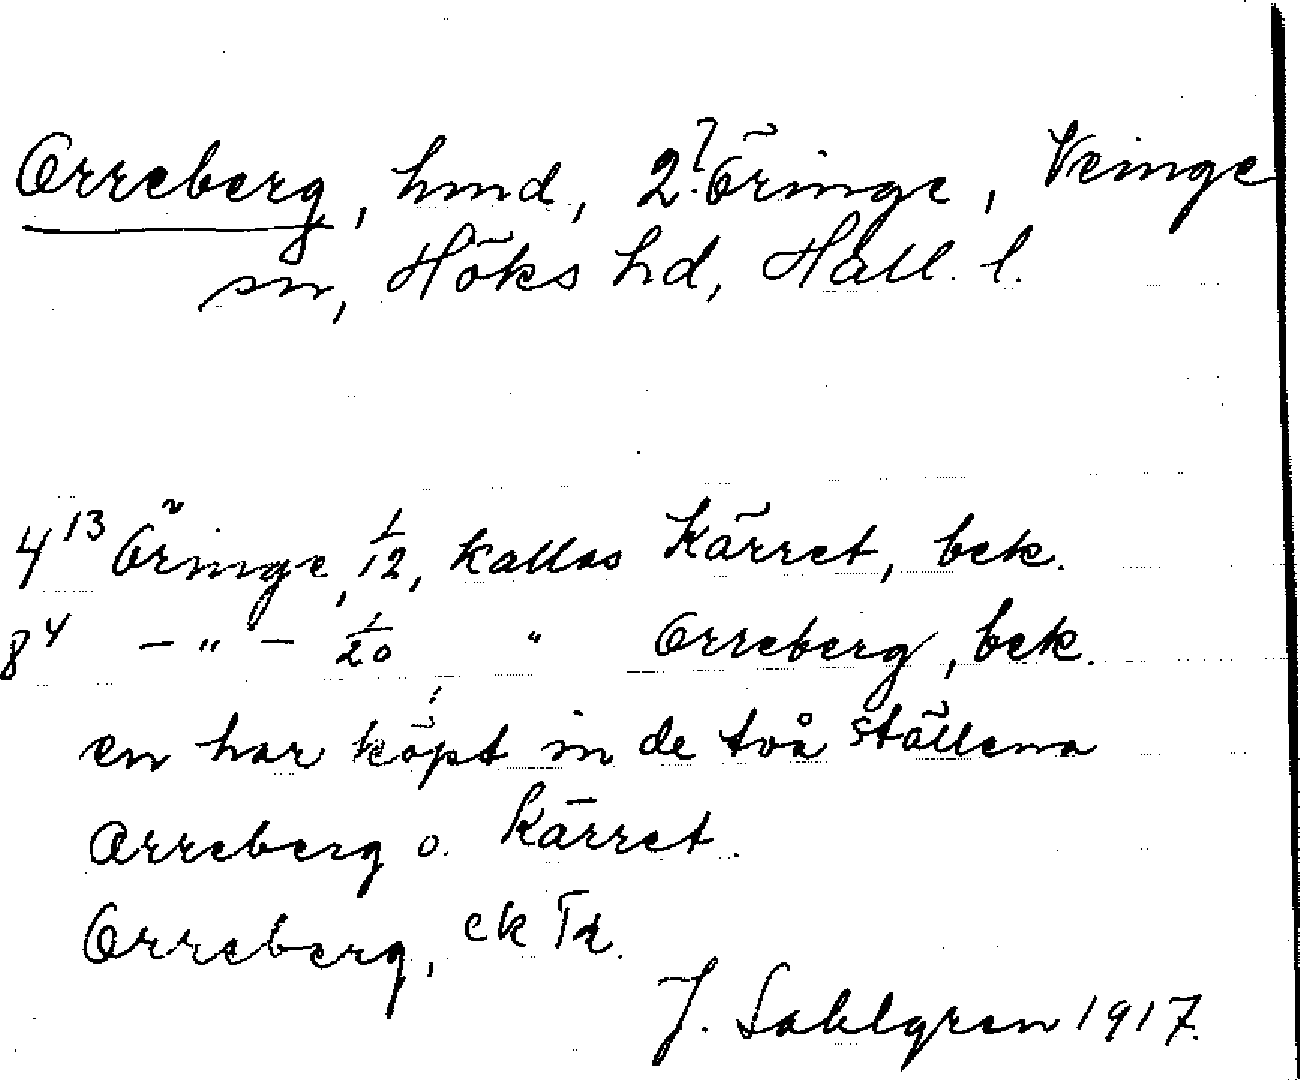 Orreberg, hmd, 2? Öringe, Veinge
sn, Höks hd, Hall. l.
4¹³ Öringe, 1/12, kallas Kärret, bek.
8⁴ — " — 1/20 " Orreberg, bek.
en har köpt in de två ställena
Orreberg o. Kärret.
Orreberg, ek
J. Sahlgren 1917.